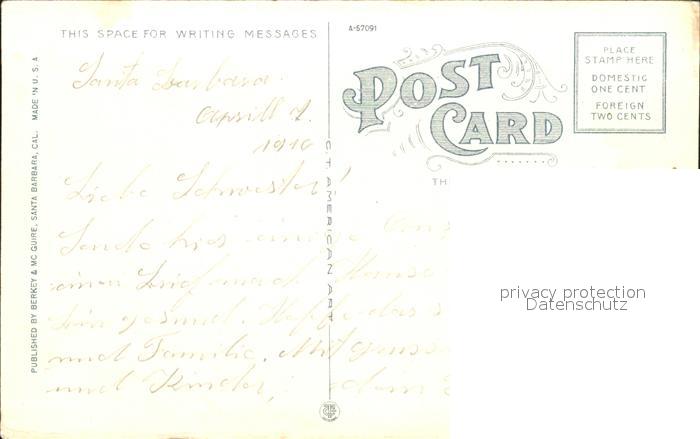 THIS SPACE FOR WRITING MESSAGES
A-57091
POST CARD
PLACE
STAMP HERE
DOMESTIC
ONE CENT
FOREIGN
TWO CENTS
Santa Barbara
Aprill
Liebe Schwester!
Sende hier einige
einen Brief nach Hause
bin gesund. Hoffe das
und Familie. Mit
und Kinder, dein
TH
C.T. AMERICAN ART
PUBLISHED BY BERKEY & MC GUIRE, SANTA BARBARA, CAL. MADE IN U.S.A
privacy protection
Datenschutz